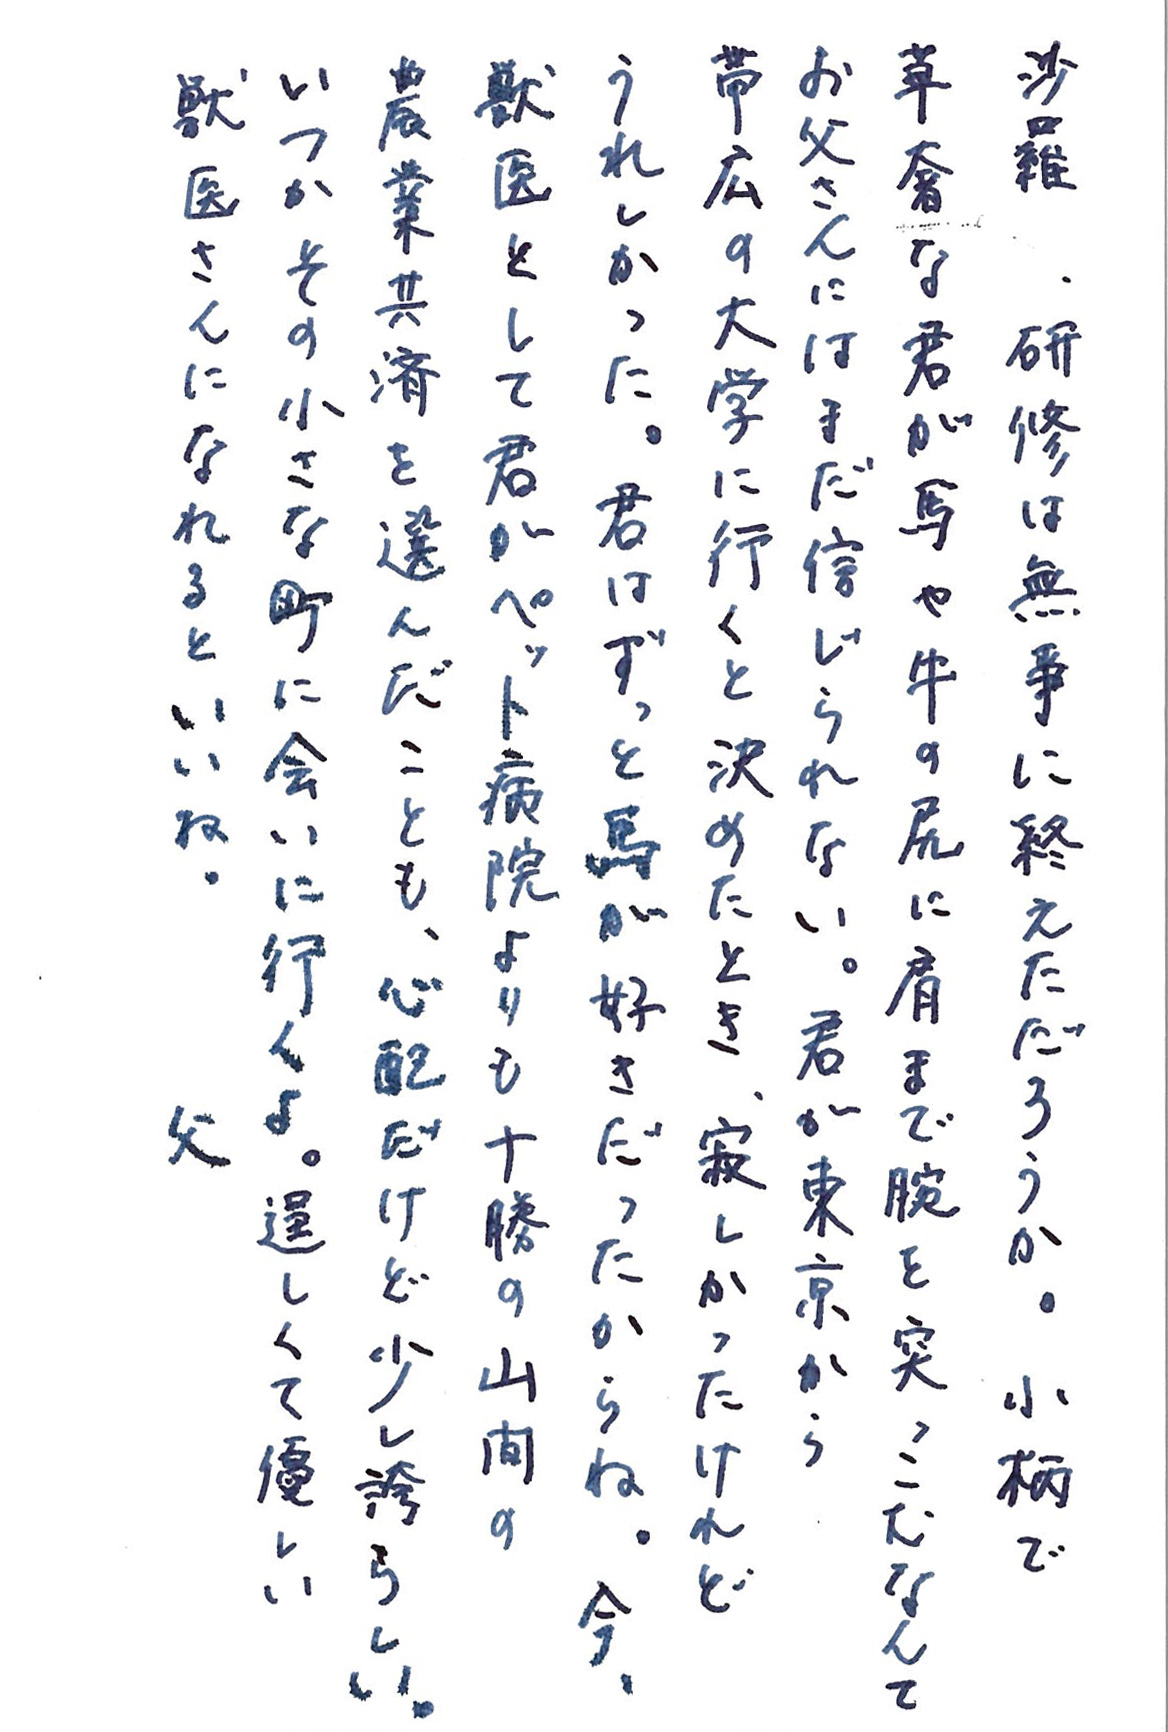 沙羅、研修は無事に終えただろうか。小柄で
華奢な君が馬や牛の尻に肩まで腕を突っこむなんて
お父さんにはまだ信じられない。君が東京から
帯広の大学に行くと決めたとき、寂しかったけれど
うれしかった。君はずっと馬が好きだったからね。今、
獣医として君がペット病院よりも十勝の山間の
農業共済を選んだことも、心配だけど少し誇らしい。
いつかその小さな町に会いに行くよ。逞しくて優しい
獣医さんになれるといいね。 父